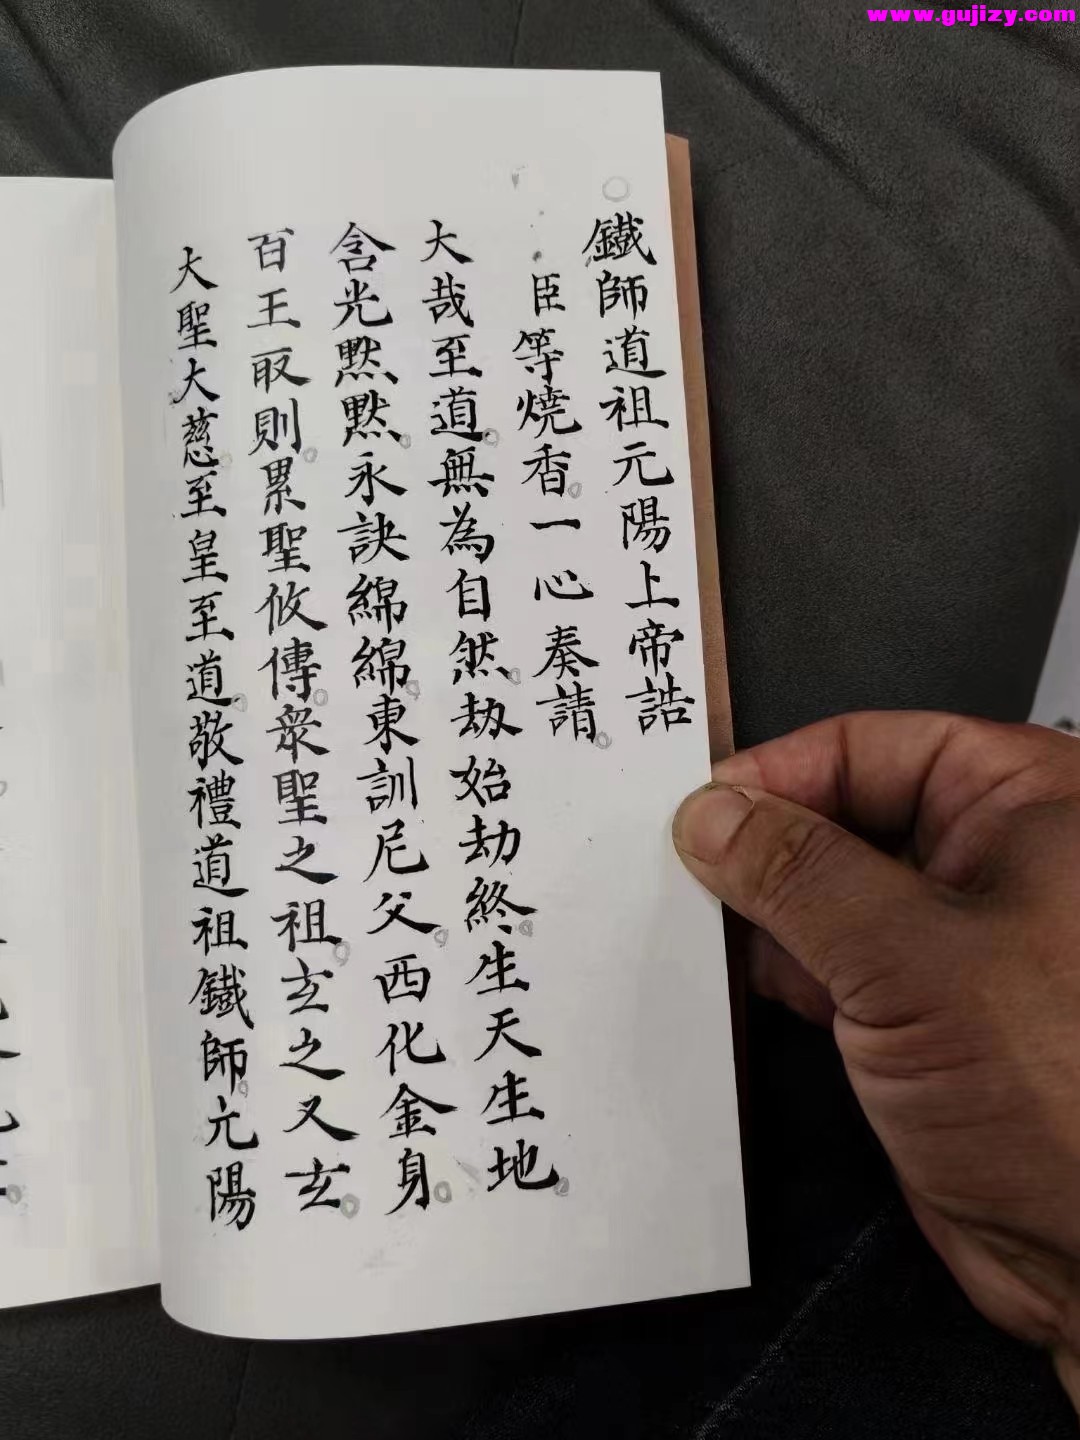 www.gujizy.com
鐵師道祖元陽上帝誥
臣等燒香。一心奏請。
大哉至道。無為自然。劫始劫終。生天生地。
含光黙黙。永訣綿綿。東訓尼父。西化金身。
百王取則。累聖攸傳。衆聖之祖。玄之又玄。
大聖大慈。至皇至道。敬禮道祖鐵師。元陽